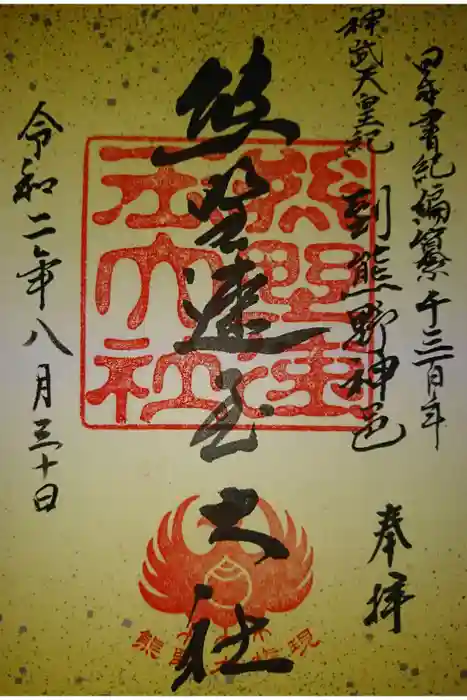 日本書紀編纂千三百年
神武天皇紀 到熊野神邑
奉拝
熊野速玉大社
熊野速玉大社
令和二年八月三十日
熊野大権現